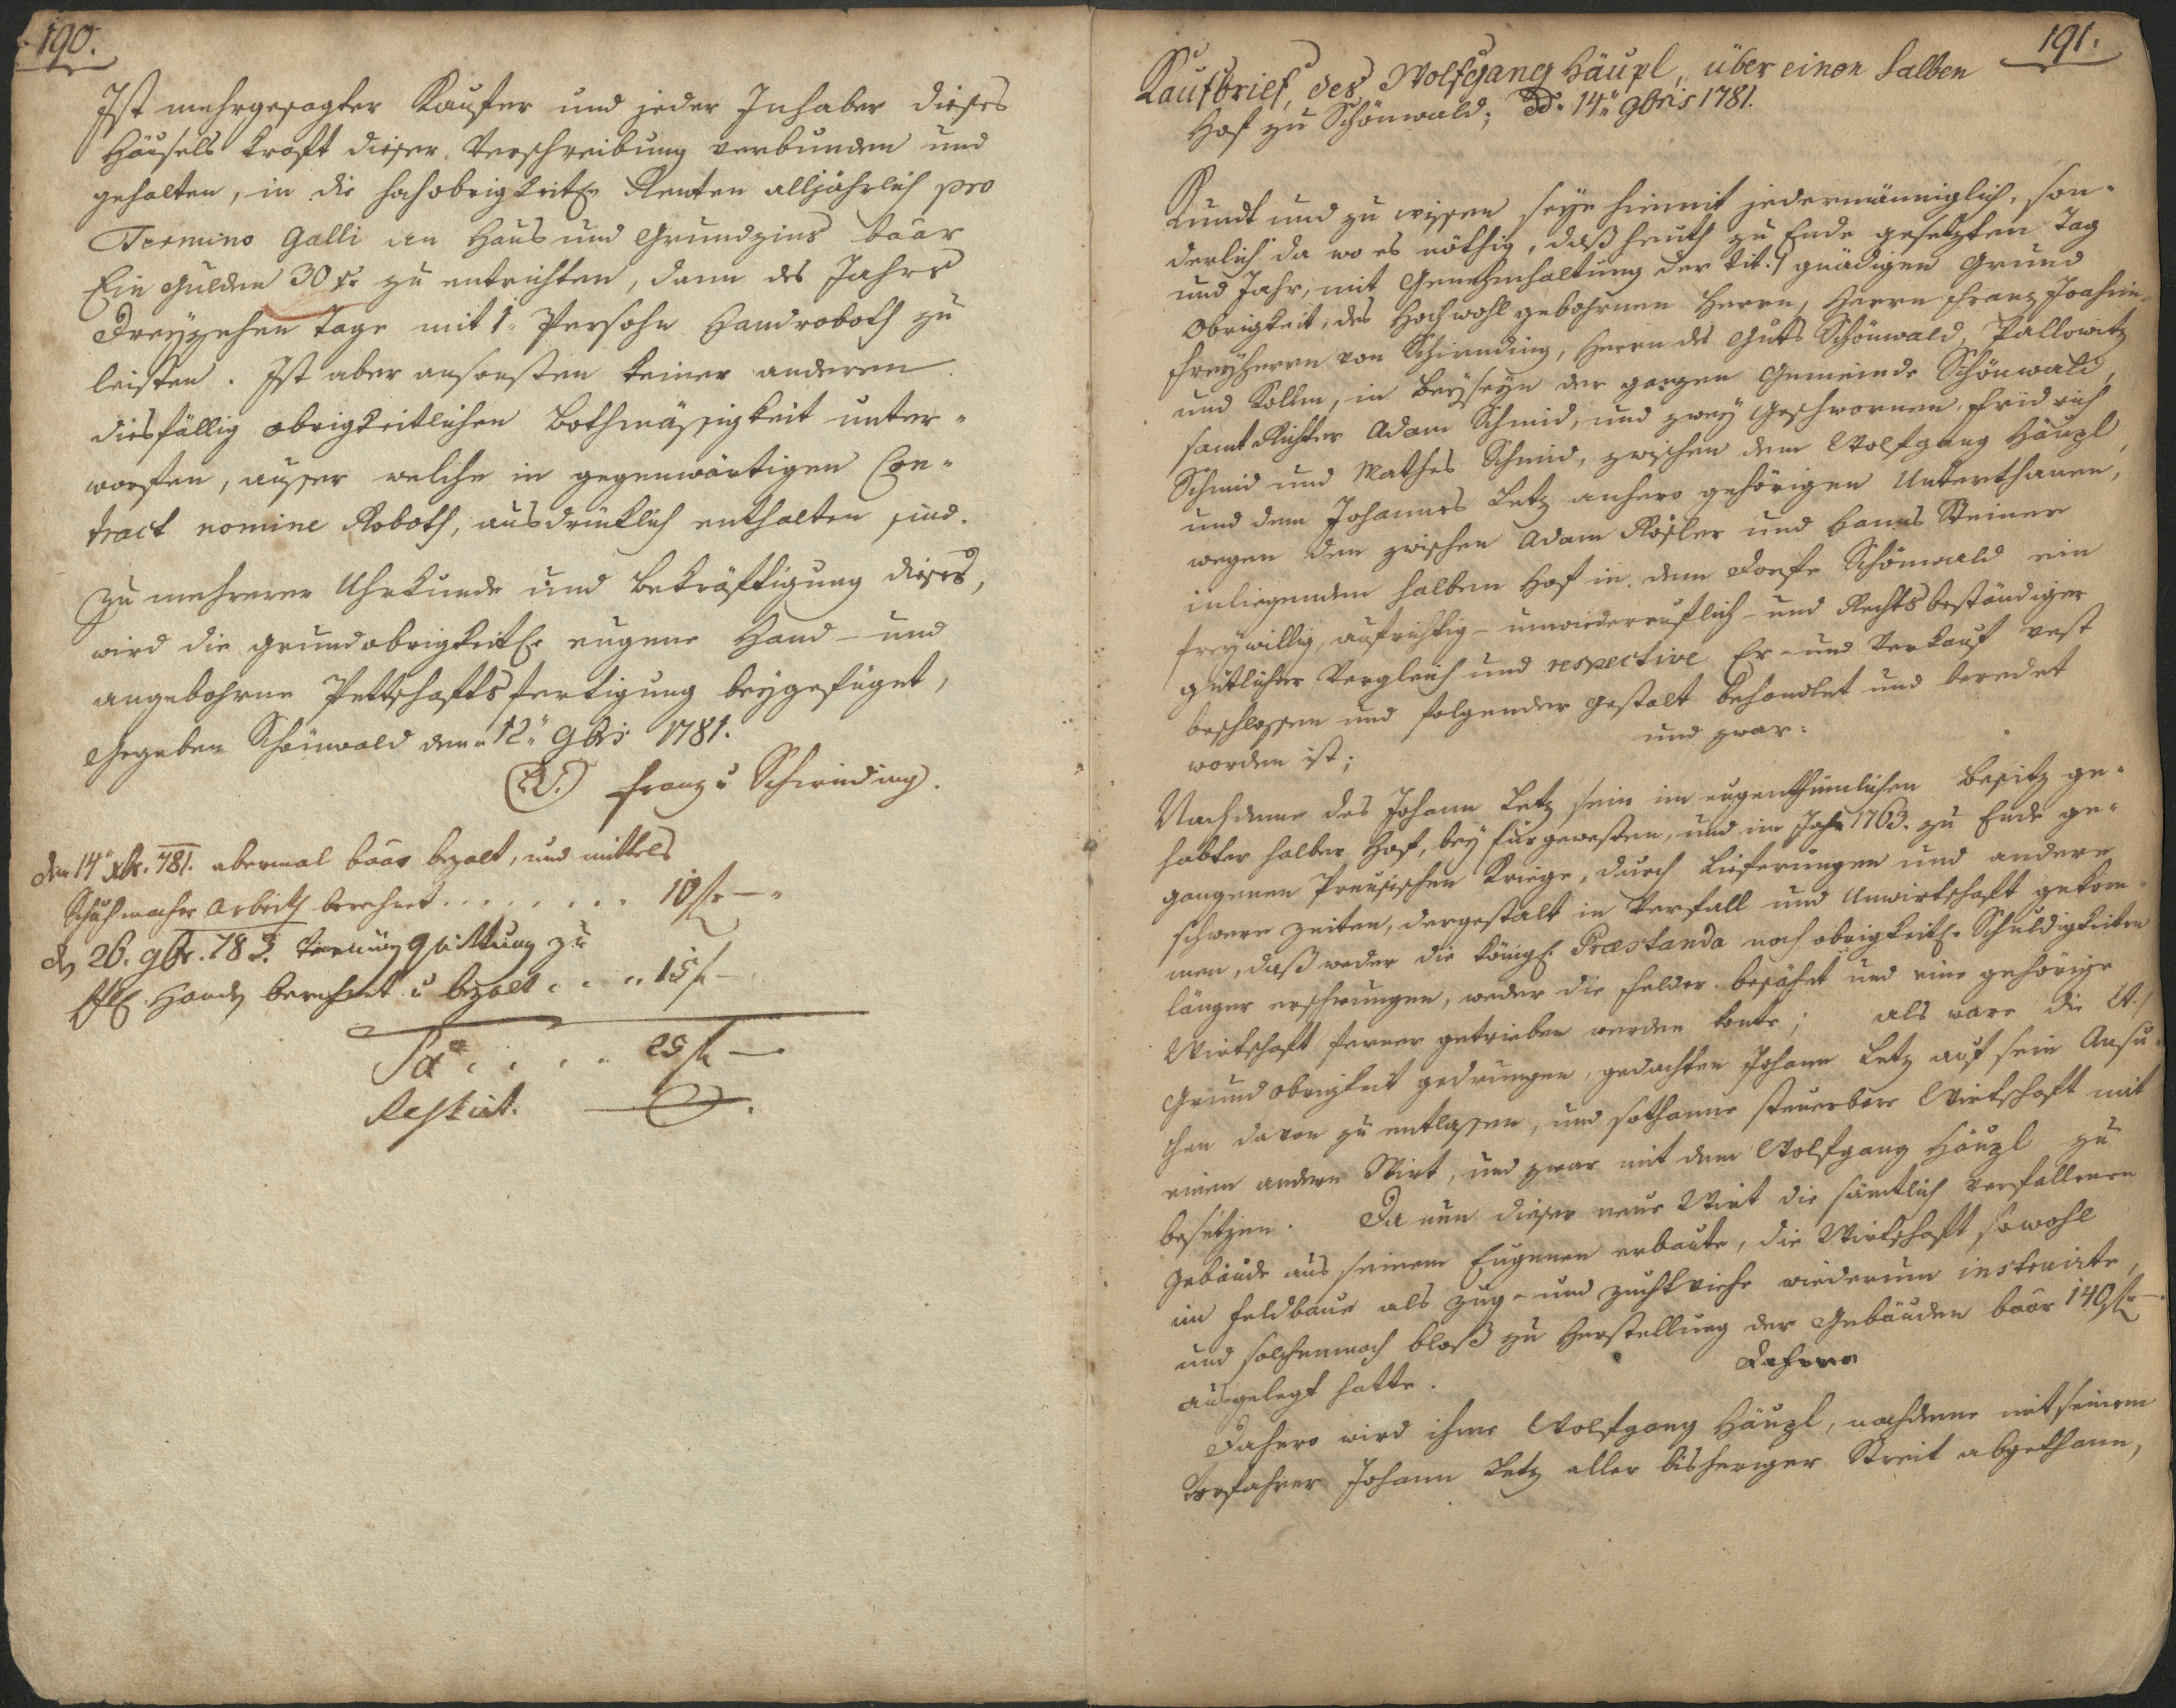 190.
Ist mehrgesagter Kaufer und jeder Inhaber dieses
Häusels kraft dieser Verschreibung verbunden und
gehalten, in die hochobrigkeitl. Renten alljährlich pro
Termino Galli an Haus und Grundzins baar
Ein Gulden 30 x. zu entrichten, dann des Jahrs
Dreyzehen Tage mit 1. Persohn Handroboth zu
leisten. Ist aber ansonsten keiner anderen
diesfällig obrigkeitlichen Bothmässigkeit unter-
worfen, ausser welche in gegenwärtigen Con-
tract nomine Roboth, ausdrücklich enthalten sind.
Zu mehrerer Uhrkunde und Bekräftigung dieses,
wird die grundobrigkeitl. eugene Hand- und
angebohrne Pettschaftsfertigung beygefüget,
Gegeben Schönwald den 12. 9bris 1781.
Franz v Schirnding.
den 14. xbr. 781. abermal baar bezalt, und mittels
Schuhmacher Arbeith berechnet . . . . . . . . 10 f —
26. 9br. 78 Quittung zu
Handen berechnet u bezalt . . . . 15 f —
Sa . . . . . 25 f —
Restirt. 0.
191.
Kaufbrief, des Wolfgang Häupl, über einen halben
Hof zu Schönwald; dd. 14. 9bris 1781.
Kundt und zu wissen seye hiemit jedermänniglich, son-
derlich da wo es nöthig, daß heuth zu Ende gesetzten Tag
und Jahr, mit Genehmhaltung der tit. gnädigen Grund
Obrigkeit, des Hochwohlgebohrnen Herrn, Herrn Franz Joachim
Freyherrn von Schirnding, Herrn des Guts Schönwald, Tallowitz
und Kollm, in Beyseyn der ganzen Gemeinde Schönwald,
samt Richter Adam Schmid, und zwey Geschwornen, Fridrich
Schmid und Mathes Schmid, zwischen dem Wolfgang Häupl,
und dem Johannes Letz anhero gehörigen Unterthanen,
wegen den zwischen Adam Rösler und Hanns Steiner
inliegenden halben Hof in dem Dorfe Schönwald ein
freywillig, aufrichtig- unwiederruflich- und Rechtsbeständiger
gütlicher Vergleich und respective Er- und Verkauf vest
beschlossen und folgender gestalt behandlet und beredet
worden ist; und zwar:
Nachdeme des Johann Letz sein im eugenthümlichen Besitz ge-
habter halber Hof, bey fürgewesten, und im Jahr 1763. zu Ende ge-
gangenen Preusischen Kriege, durch Lieferungen und andere
schwere Zeiten, dergestalt in Verfall und Unwirtschaft gekom-
men, daß weder die königl. Præstanda noch obrigkeitl. Schuldigkeiten
länger erschwungen, weder die Felder besähet und eine gehörige
Wirtschaft ferner getrieben werden konte; als ware die
Grundobrigkeit gedrungen, gedachten Johann Letz auf sein Ansu-
chen davon zu entlassen, und sothanne steuerbare Wirtschaft mit
einem andern Wirt, und zwar mit dem Wolfgang Häupl zu
besetzen. Da nun dieser neue Wirt die sämtlich verfallenen
Gebäude aus seinem Eugenen erbaute, die Wirtschaft sowohl
im Feldbaue als Zug- und Zuchtviehe wiederum instruirte,
und solchemnach bloß zu Herstellung der Gebäuden baar 140 f —
ausgelegt hatte. Dahero
Dahero wird ihme Wolfgang Häupl, nachdeme mit seinem
Vorfahrer Johann Letz aller bisheriger Streit abgethann,